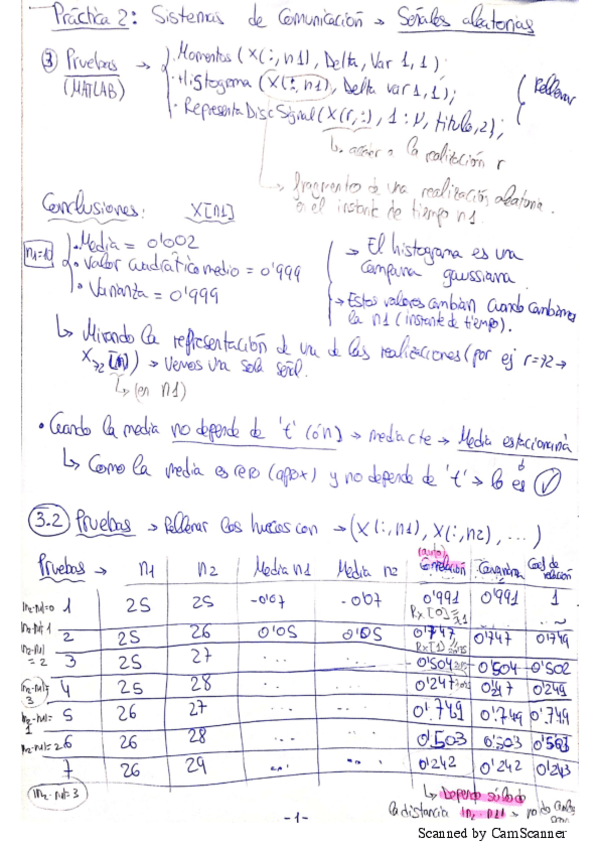 Práctica 2: Sistemas de Comunicación → Señales aleatorias
③ Pruebas → · Momentos (X(:,n1), Delta, Var 1, 1);
(MATLAB) · Histograma (X(:,n1), Delta var 1, 1); Rellenar
· RepresentaDiscSignal (X(r,:), 1:N, titulo, 2);
↳ acceder a la realización r
→ fragmentos de una realización aleatoria
en el instante de tiempo n1.
Conclusiones: X[n1]
n1=10 · Media = 0'002 → El histograma es una
· Valor cuadrático medio = 0'999 campana gaussiana
· Varianza = 0'999 → Estos valores cambian cuando cambiamos
la n1 (instante de tiempo).
↳ Mirando la representación de una de las realizaciones (por ej r=72 →
X72[n]) → vemos una sola señal.
↳ (en n1)
· Cuando la media no depende de 't' (ó n) → media cte → Media estacionaria
↳ Como la media es cero (aprox) y no depende de 't' → lo es ✓
3.2 Pruebas → Rellenar los huecos con → (X(:,n1), X(:,n2), ...)
(auto)
Pruebas → n1 n2 Media n1 Media n2 Correlación Covarianza Coef de
relación
|n2-n1|=0 1 25 25 -0'07 -0'07 0'991 0'991 1
Rx[0]=
|n2-n1|=1 2 25 26 0'05 0'05 0'747 0'747 0'749
Rx[1]=
|n2-n1|=2 3 25 27 ... ... 0'504 0'504 0'502
|n2-n1|=3 4 25 28 ... ... 0'247 0'247 0'249
|n2-n1|=1 5 26 27 ... ... 0'749 0'749 0'749
|n2-n1|=2 6 26 28 ... ... 0'503 0'503 0'503
7 26 29 ... ... 0'242 0'242 0'243
|n2-n1|=3 ↳ Depende sólo de
la distancia |n2-n1| → no de
-1-
Scanned by CamScanner